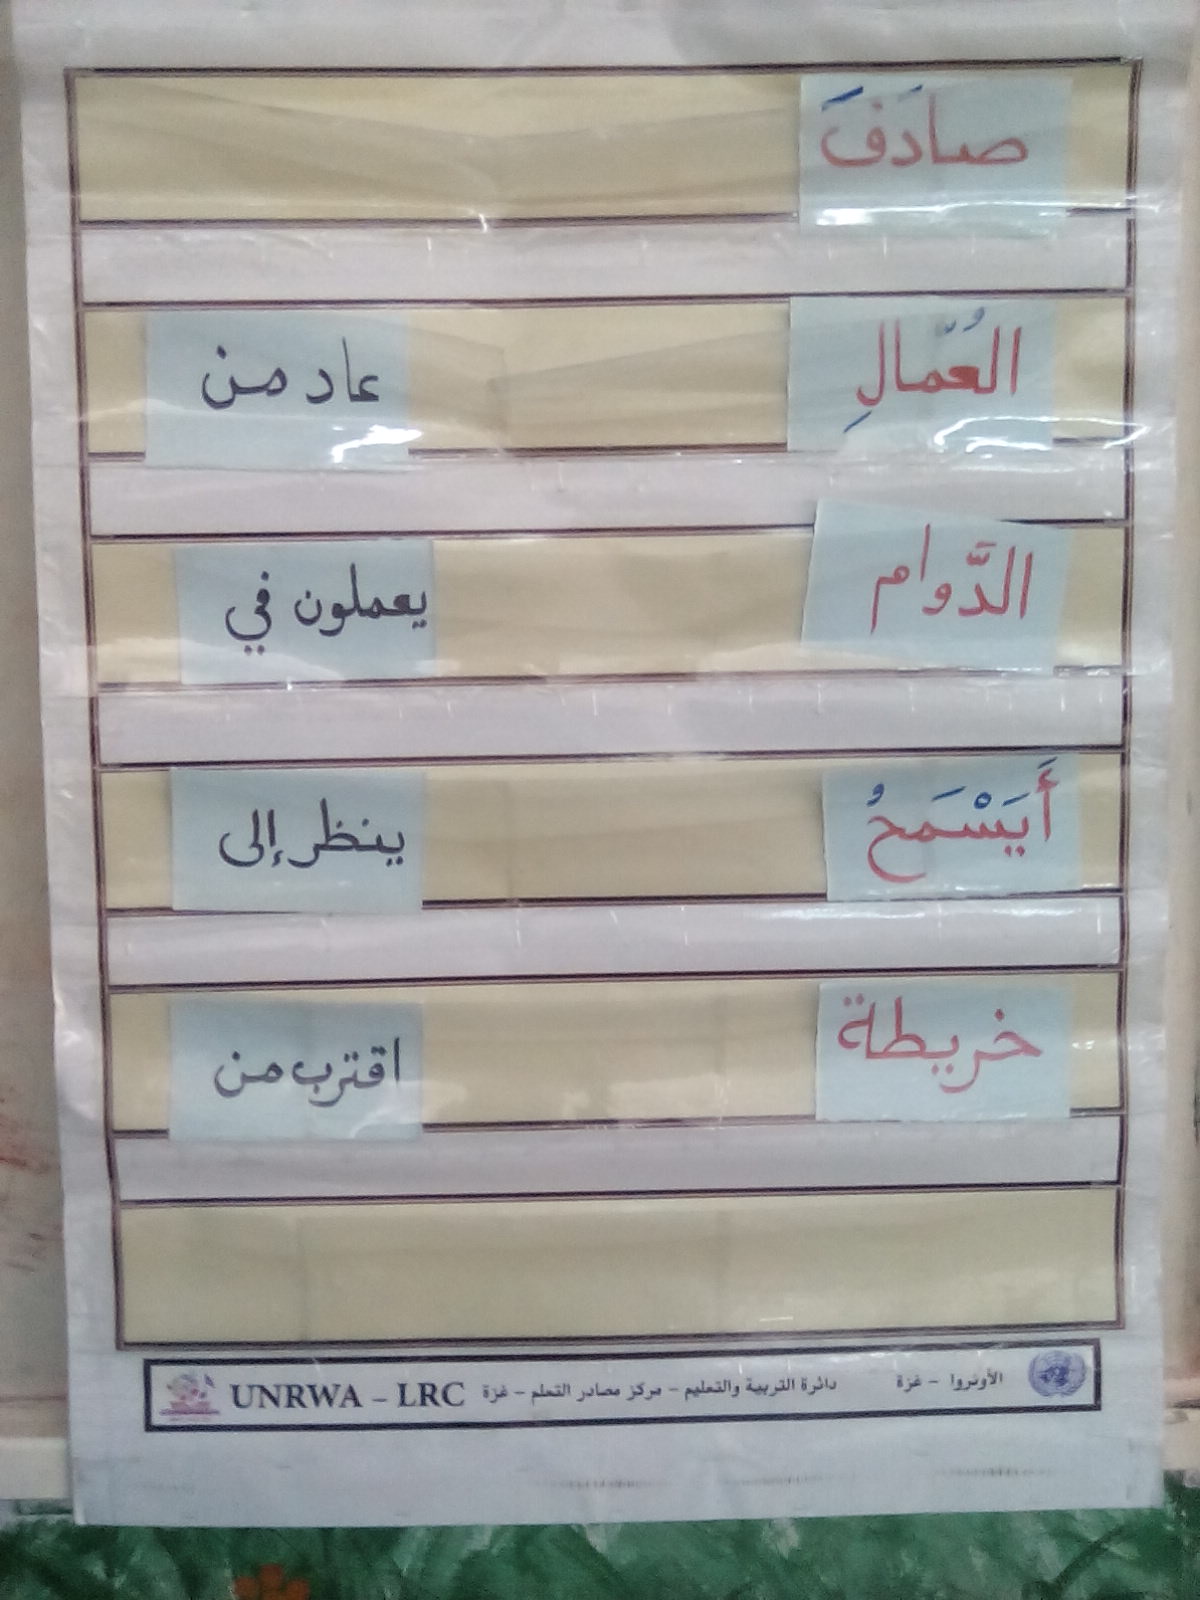 صادَفَ
العُمّالِ عاد من
الدَّوام يعملون في
أَيَسْمَحُ ينظر إلى
خريطة اقترب من
الأونروا - غزة دائرة التربية والتعليم - مركز مصادر التعلم - غزة UNRWA - LRC